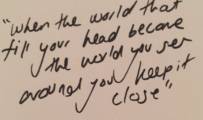 "When the world that
fill your head become
the world you see
around you keep it
close"